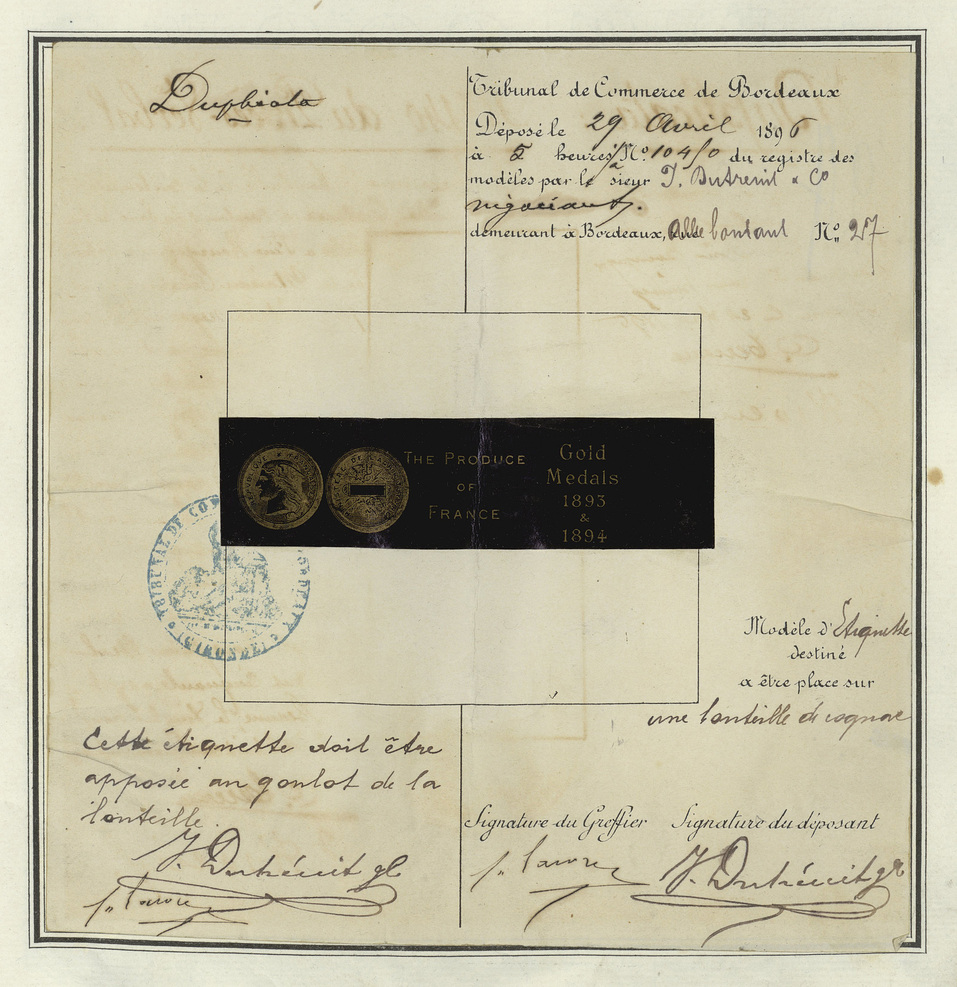 Duplicata
Tribunal de Commerce de Bordeaux
Déposé le 29 Avril 1896
à 5 heures Nº 10450 du registre des
modèles par le sieur J. Dutrénit & Co
négociants.
demeurant à Bordeaux, Allée Boutaut Nº 27
The Produce
of
France
Gold
Medals
1893
&
1894
TRIBUNAL DE COMMERCE BORDEAUX
(GIRONDE)
Modèle d'Etiquette
destiné
a être place sur
une bouteille de cognac
Cette étiquette doit être
apposée au goulot de la
bouteille.
J. Dutrénit
Signature du Greffier Signature du déposant
J. Dutrénit